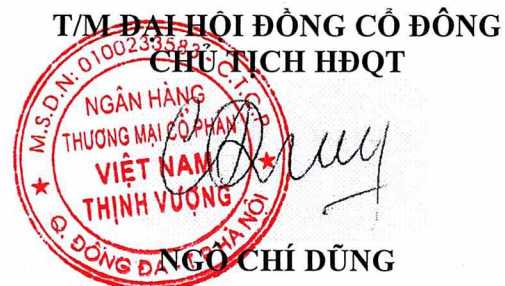 T/M ĐẠI HỘI ĐỒNG CỔ ĐÔNG
CHỦ TỊCH HĐQT
M.S.D.N: 0100233583 - C.T.C.P
NGÂN HÀNG
THƯƠNG MẠI CỔ PHẦN
VIỆT NAM
THỊNH VƯỢNG
Q. ĐỐNG ĐA - T.P HÀ NỘI
NGÔ CHÍ DŨNG